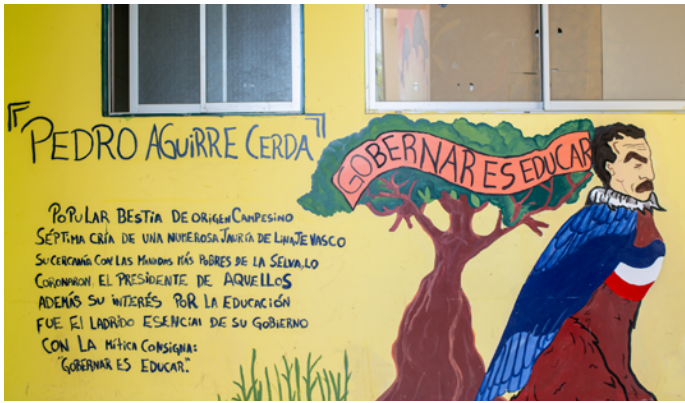 "PEDRO AGUIRRE CERDA"
GOBERNAR ES EDUCAR
POPULAR BESTIA DE ORIGEN CAMPESINO
SÉPTIMA CRÍA DE UNA NUMEROSA JAURÍA DE LINAJE VASCO
SU CERCANÍA CON LAS MANADAS MÁS POBRES DE LA SELVA, LO
CORONARON, EL PRESIDENTE DE AQUELLOS
ADEMÁS SU INTERÉS POR LA EDUCACIÓN
FUE El LADRIDO ESENCIAl DE SU GOBIERNO
CON LA MÍTICA CONSIGNA:
"GOBERNAR ES EDUCAR."